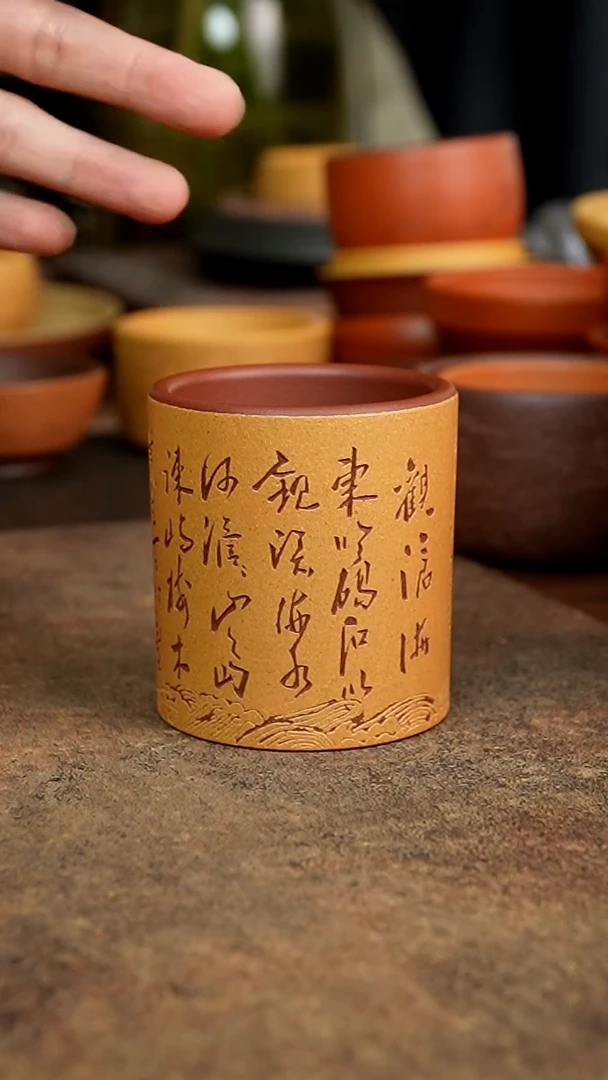 觀滄海
東臨碣石以
觀滄海水
何澹〻山島
竦峙樹木